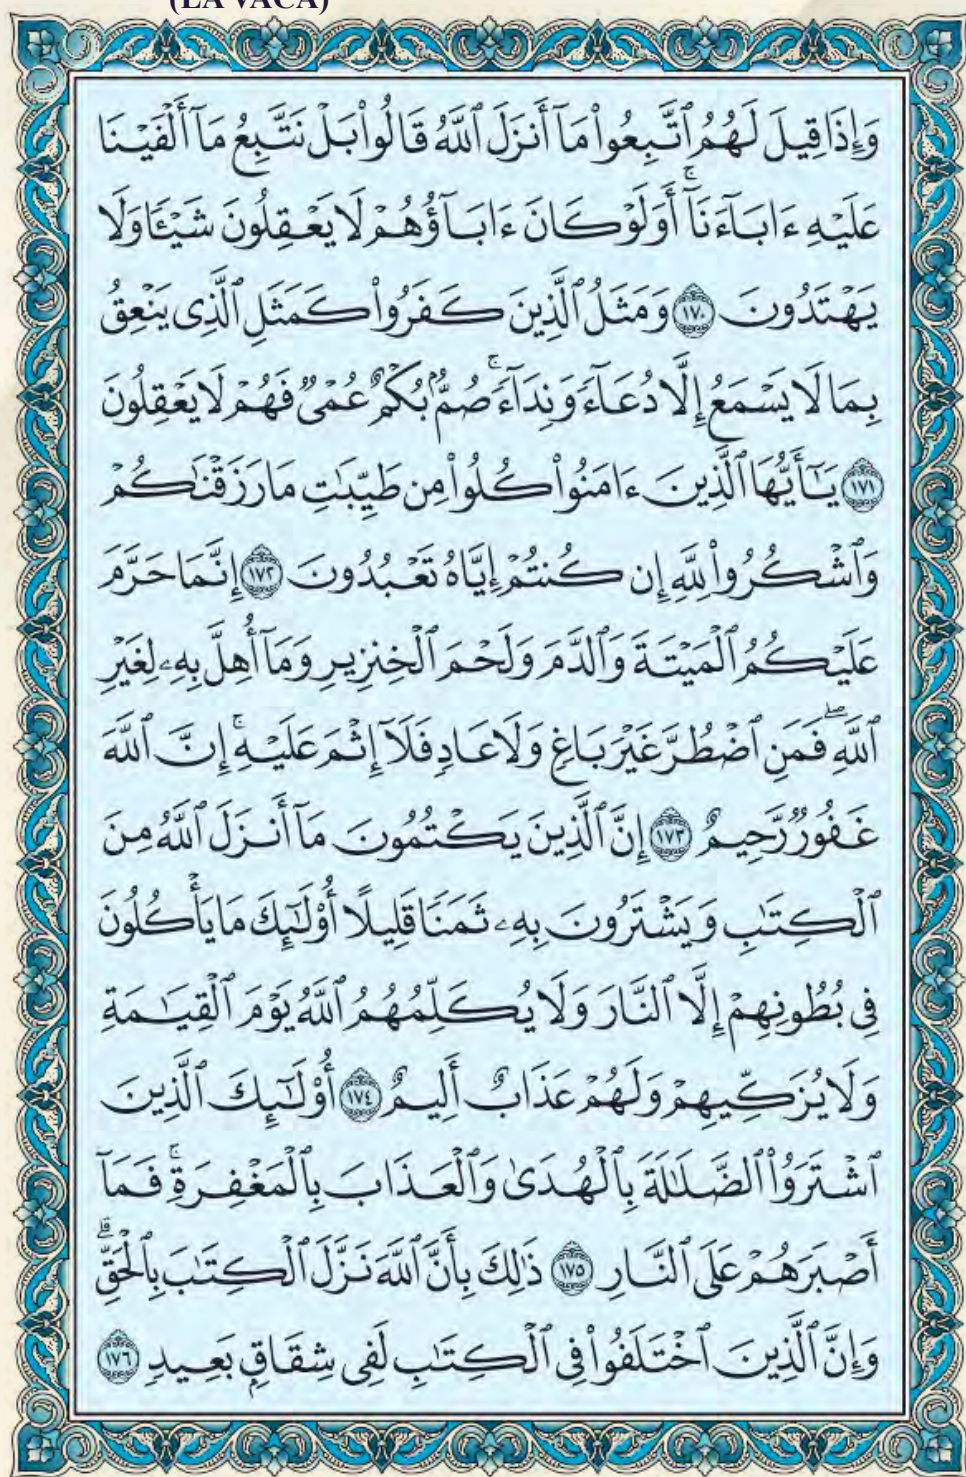 (LA VACA)
وَإِذَا قِيلَ لَهُمُ ٱتَّبِعُوا۟ مَآ أَنزَلَ ٱللَّهُ قَالُوا۟ بَلْ نَتَّبِعُ مَآ أَلْفَيْنَا
عَلَيْهِ ءَابَآءَنَآ ۚ أَوَلَوْ كَانَ ءَابَآؤُهُمْ لَا يَعْقِلُونَ شَيْـًٔا وَلَا
يَهْتَدُونَ ١٧٠ وَمَثَلُ ٱلَّذِينَ كَفَرُوا۟ كَمَثَلِ ٱلَّذِى يَنْعِقُ
بِمَا لَا يَسْمَعُ إِلَّا دُعَآءً وَنِدَآءً ۚ صُمٌّۢ بُكْمٌ عُمْىٌ فَهُمْ لَا يَعْقِلُونَ
١٧١ يَـٰٓأَيُّهَا ٱلَّذِينَ ءَامَنُوا۟ كُلُوا۟ مِن طَيِّبَـٰتِ مَا رَزَقْنَـٰكُمْ
وَٱشْكُرُوا۟ لِلَّهِ إِن كُنتُمْ إِيَّاهُ تَعْبُدُونَ ١٧٢ إِنَّمَا حَرَّمَ
عَلَيْكُمُ ٱلْمَيْتَةَ وَٱلدَّمَ وَلَحْمَ ٱلْخِنزِيرِ وَمَآ أُهِلَّ بِهِۦ لِغَيْرِ
ٱللَّهِ ۖ فَمَنِ ٱضْطُرَّ غَيْرَ بَاغٍ وَلَا عَادٍ فَلَآ إِثْمَ عَلَيْهِ ۚ إِنَّ ٱللَّهَ
غَفُورٌ رَّحِيمٌ ١٧٣ إِنَّ ٱلَّذِينَ يَكْتُمُونَ مَآ أَنزَلَ ٱللَّهُ مِنَ
ٱلْكِتَـٰبِ وَيَشْتَرُونَ بِهِۦ ثَمَنًا قَلِيلًا أُو۟لَـٰٓئِكَ مَا يَأْكُلُونَ
فِى بُطُونِهِمْ إِلَّا ٱلنَّارَ وَلَا يُكَلِّمُهُمُ ٱللَّهُ يَوْمَ ٱلْقِيَـٰمَةِ
وَلَا يُزَكِّيهِمْ وَلَهُمْ عَذَابٌ أَلِيمٌ ١٧٤ أُو۟لَـٰٓئِكَ ٱلَّذِينَ
ٱشْتَرَوُا۟ ٱلضَّلَـٰلَةَ بِٱلْهُدَىٰ وَٱلْعَذَابَ بِٱلْمَغْفِرَةِ ۚ فَمَآ
أَصْبَرَهُمْ عَلَى ٱلنَّارِ ١٧٥ ذَٰلِكَ بِأَنَّ ٱللَّهَ نَزَّلَ ٱلْكِتَـٰبَ بِٱلْحَقِّ ۗ
وَإِنَّ ٱلَّذِينَ ٱخْتَلَفُوا۟ فِى ٱلْكِتَـٰبِ لَفِى شِقَاقٍۭ بَعِيدٍ ١٧٦